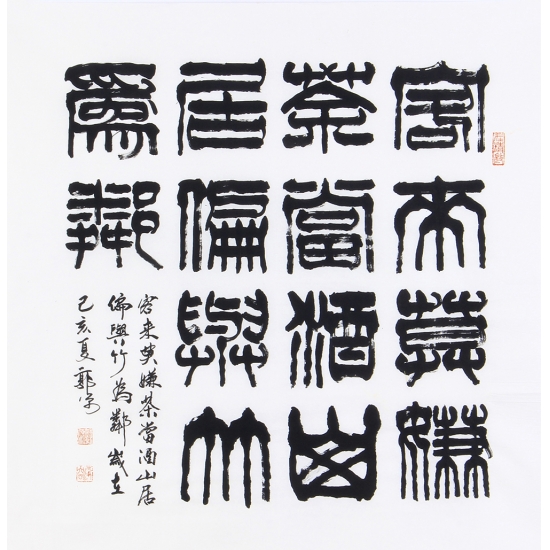 客来莫嫌
茶當酒山
居偏與竹
為鄰
客来莫嫌茶當酒山居
偏與竹為鄰歲在
己亥夏郭